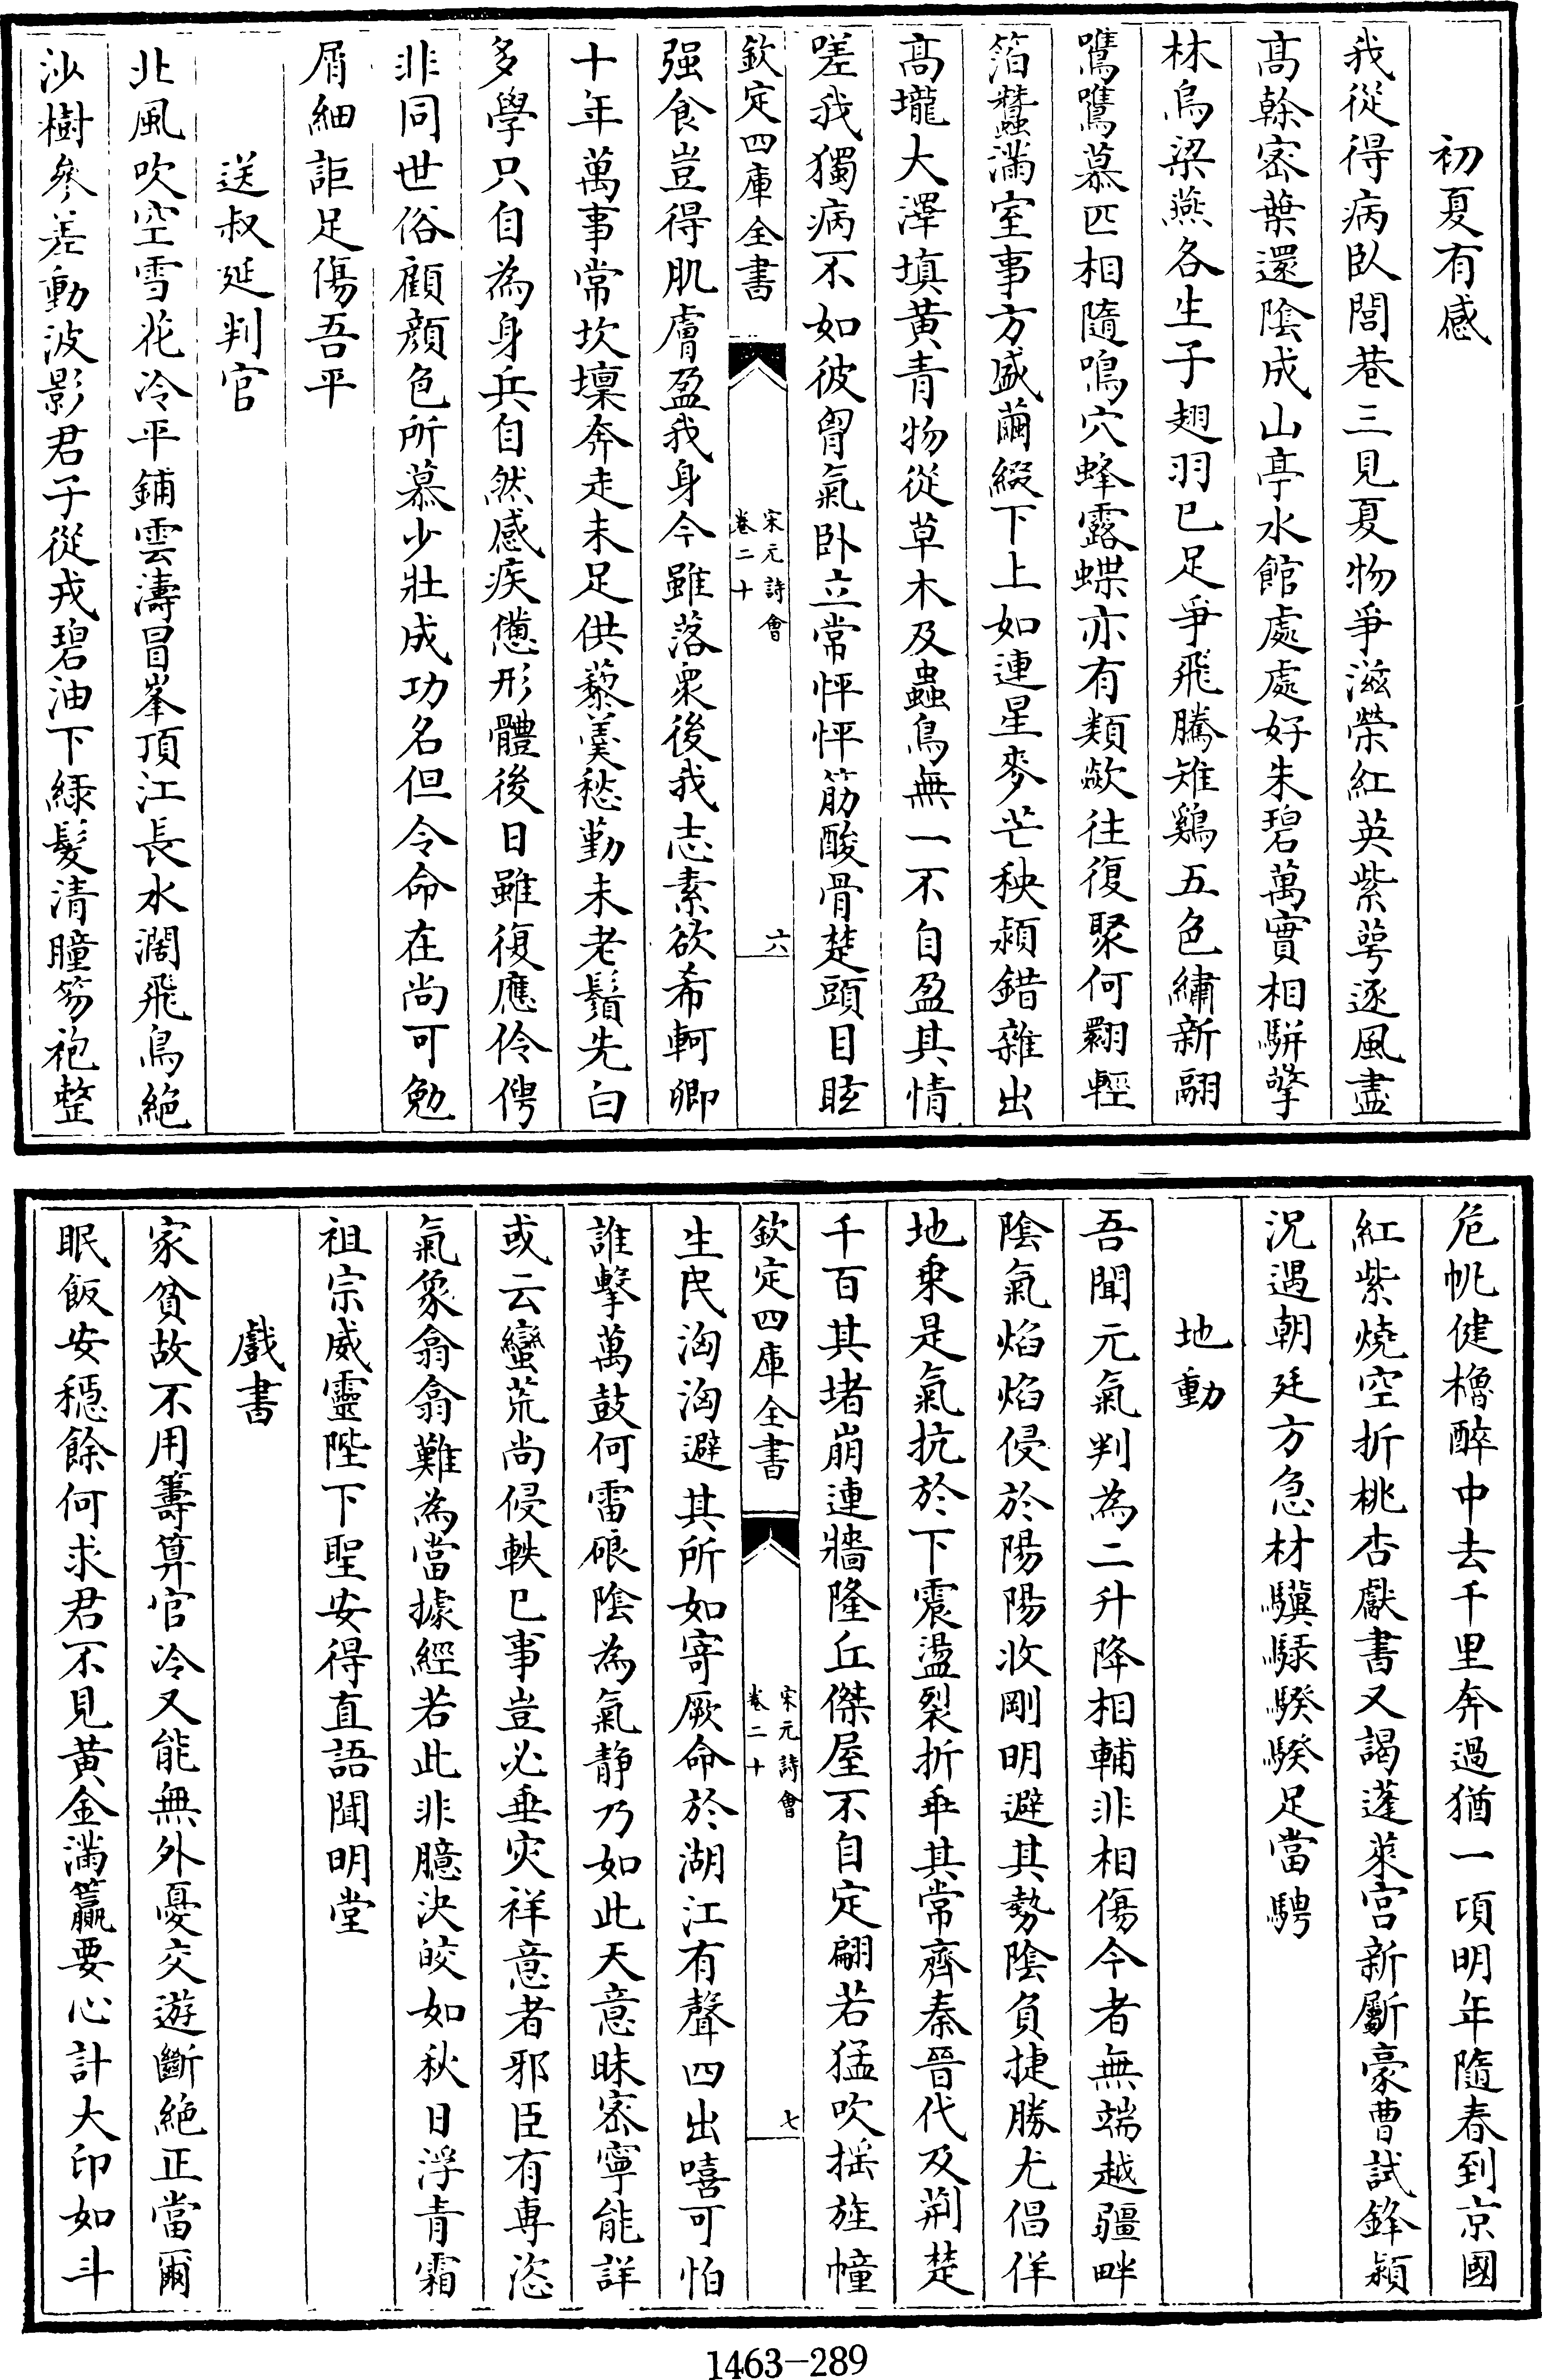 初夏有感
我從得病臥閭巷三見夏物爭滋榮紅英紫萼逐風盡
髙榦宻葉還陰成山亭水館處處好朱碧萬實相駢擎
林烏梁燕各生子翅羽已足爭飛騰雉鷄五色繡新翮
鷕鷕慕匹相隨鳴穴蜂露蝶亦有類歘往復聚何翾輕
箔蠶滿室事方盛繭綴下上如連星麥芒秧潁錯雜出
髙壠大澤填黄青物從草木及蟲鳥無一不自盈其情
嗟我獨病不如彼胷氣卧立常怦怦筋酸骨楚頭目眩
欽定四庫全書
宋元詩會
卷二十
六
强食豈得肌膚盈我身今雖落衆後我志素欲希軻卿
十年萬事常坎壈奔走未足供藜羮愁勤未老鬚先白
多學只自為身兵自然感疾憊形體後日雖復應伶俜
非同世俗顧顔色所慕少壯成功名但令命在尚可勉
屑細詎足傷吾平
送叔延判官
北風吹空雪花冷平鋪雲濤冒峯頂江長水濶飛鳥絶
沙樹參差動波影君子從戎碧油下緑髮清瞳笏袍整
危帆健櫓醉中去千里奔過猶一項明年隨春到京國
紅紫燒空折桃杏獻書又謁蓬萊宫新斸豪曹試鋒潁
況遇朝廷方急材驥騄騤騤足當騁
地動
吾聞元氣判為二升降相輔非相傷今者無端越疆畔
陰氣焰焰侵於陽陽收剛明避其勢陰負捷勝尤倡佯
地乗是氣抗於下震盪裂折乖其常齊秦晉代及荆楚
千百其堵崩連牆隆丘傑屋不自定翩若猛吹揺旌幢
欽定四庫全書
宋元詩會
卷二十
七
生民洶洶避其所如寄厥命於湖江有聲四出嘻可怕
誰擊萬鼓何雷硠陰為氣静乃如此天意昧宻寧能詳
或云蠻荒尚侵軼已事豈必垂灾祥意者邪臣有専恣
氣象翕翕難為當據經若此非臆決皎如秋日浮青霜
祖宗威靈陛下聖安得直語聞明堂
戲書
家貧故不用籌算官冷又能無外憂交遊斷絶正當爾
眠飯安穏餘何求君不見黄金滿籯要心計大印如斗
1463-289